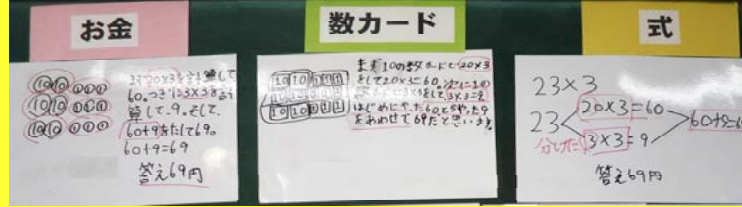 お金
⑩⑩①①①
⑩⑩①①①
⑩⑩①①①
まず20×3を計算して
60。つぎに3×3を計
算して9。そして、
60+9をたして69。
60+9=69
答え69円
数カード
10 10 1 1 1
10 10 1 1 1
10 10 1 1 1
まず10の数カードで20×3
をして20×3=60。次に1の
をして3×3=9
はじめにやった60と
をあわせて69だと思います。
式
23×3
23
20×3=60
3×3=9
60+9=6
分けた
答え69円